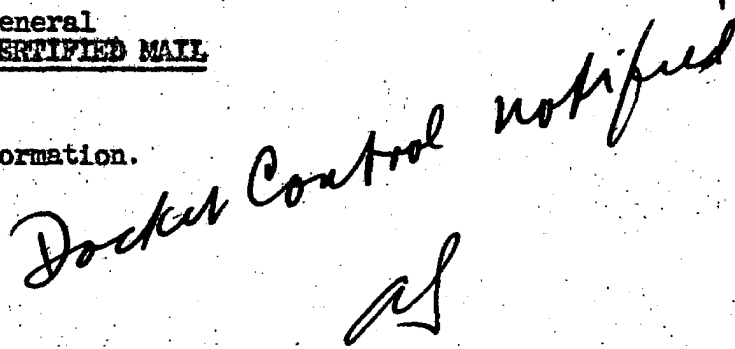 eneral
ERTIFIED MAIL
ormation.
Docket Control notified